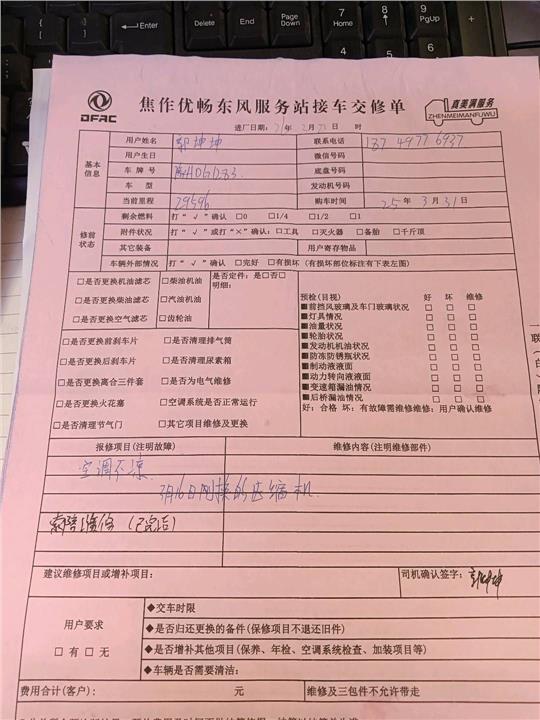 Enter
Delete
End
Page Down
7 Home
8
9 PgUp
4
5
6
DFAC
焦作优畅东风服务站接车交修单
真美满服务
ZHENMEIMANFUWU
进厂日期: 年 月 日 时
基本信息
用户姓名 坤坤 联系电话
用户生日 微信号码
车牌号 底盘号码
车型 发动机号码
当前里程 29596 购车时间 25年3月31日
修前状态
剩余燃料 打“√”确认 □0 □1/4 □1/2 □1
附件状况 打“√”或打“×”确认:□工具 □灭火器 □备胎 □千斤顶
其它装备 用户寄存物品
车辆外部情况 打“√”确认 □完好 □有损坏(有损坏部位标注有下表左图)
□是否更换机油滤芯 □柴油机油 是否定件:是□否□
明细:
□是否更换柴油滤芯 □汽油机油
□是否更换空气滤芯 □齿轮油
□是否更换前刹车片 □是否清理排气筒
□是否更换后刹车片 □是否清理尿素箱
□是否更换离合三件套 □是否为电气维修
□是否更换火花塞 □空调系统是否正常运行
□是否清理节气门 □其它项目维修及更换
预检(目视) 好 坏 维修
■前挡风玻璃及车门玻璃状况 □ □ □
■灯具情况 □ □ □
■油量状况 □ □ □
■轮胎状况 □ □ □
■发动机机油状况 □ □ □
■防冻防锈瓶状况 □ □ □
■制动液液面 □ □ □
■动力转向液液面 □ □ □
■变速箱漏油情况 □ □ □
■后桥漏油情况 □ □ □
好:合格 坏:有故障需维修维修:用户确认维修
报修项目(注明故障) 维修内容(注明维修部件)
空调不凉
月16日刚换的压缩机
索赔维修(已完后)
建议维修项目或增补项目: 司机确认签字: 坤坤
用户要求
□有□无
◆交车时限
◆是否归还更换的备件(保修项目不退还旧件)
◆是否增补其他项目(保养、年检、空调系统检查、加装项目等)
◆车辆是否需要清洁:
费用合计(客户): 元 维修及三包件不允许带走
联
白